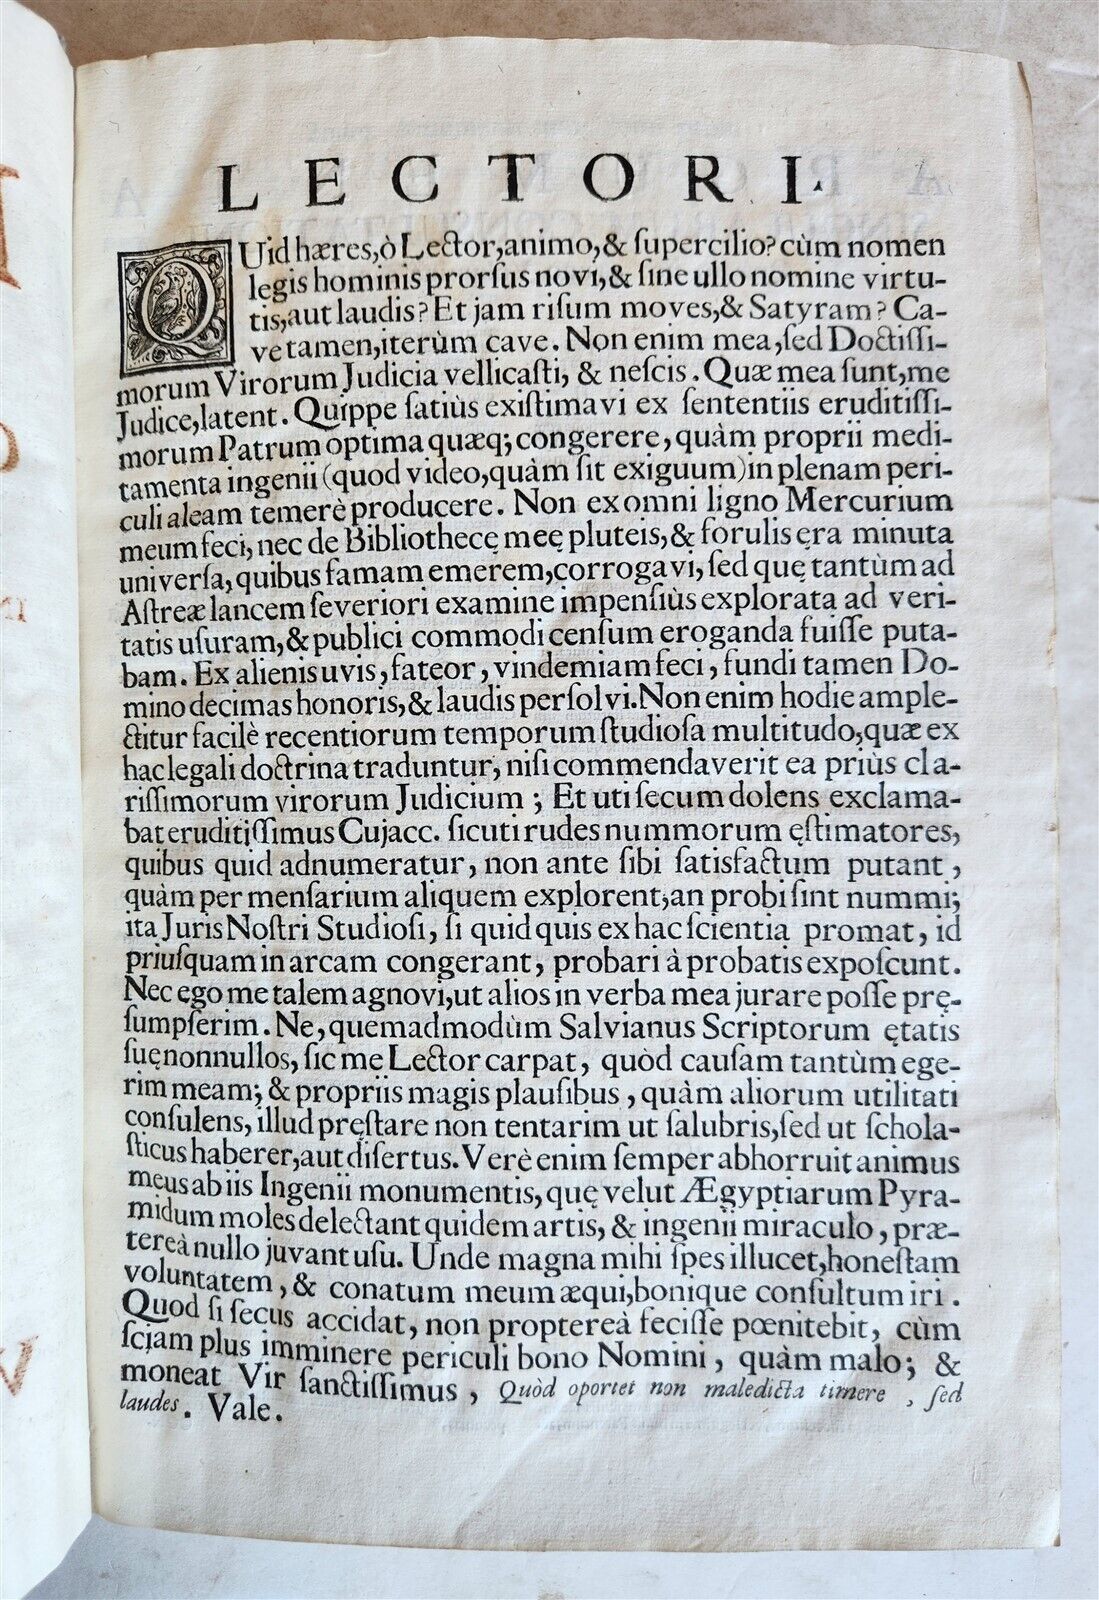 LECTORI.
QUid hæres, ò Lector, animo, & supercilio? cùm nomen
legis hominis prorsus novi, & sine ullo nomine virtu-
tis, aut laudis? Et jam risum moves, & Satyram? Ca-
ve tamen, iterùm cave. Non enim mea, sed Doctissi-
morum Virorum Judicia vellicasti, & nescis. Quæ mea sunt, me
Judice, latent. Quippe satiùs existimavi ex sententiis eruditissi-
morum Patrum optima quæq; congerere, quàm proprii medi-
tamenta ingenii (quod video, quàm sit exiguum) in plenam peri-
culi aleam temerè producere. Non ex omni ligno Mercurium
meum feci, nec de Bibliothecę meę pluteis, & forulis ęra minuta
universa, quibus famam emerem, corrogavi, sed quę tantùm ad
Astreæ lancem severiori examine impensiùs explorata ad veri-
tatis usuram, & publici commodi censum eroganda fuisse puta-
bam. Ex alienis uvis, fateor, vindemiam feci, fundi tamen Do-
mino decimas honoris, & laudis persolvi. Non enim hodie ample-
ctitur facilè recentiorum temporum studiosa multitudo, quæ ex
hac legali doctrina traduntur, nisi commendaverit ea priùs cla-
rissimorum virorum Judicium; Et uti secum dolens exclama-
bat eruditissimus Cujacc. sicuti rudes nummorum ęstimatores,
quibus quid adnumeratur, non ante sibi satisfactum putant,
quàm per mensarium aliquem explorent, an probi sint nummi;
ita Juris Nostri Studiosi, si quid quis ex hac scientia promat, id
priusquam in arcam congerant, probari à probatis exposcunt.
Nec ego me talem agnovi, ut alios in verba mea jurare posse prę-
sumpserim. Ne, quemadmodùm Salvianus Scriptorum ętatis
suę nonnullos, sic me Lector carpat, quòd causam tantùm ege-
rim meam; & propriis magis plausibus, quàm aliorum utilitati
consulens, illud pręstare non tentarim ut salubris, sed ut schola-
sticus haberer, aut disertus. Verè enim semper abhorruit animus
meus ab iis Ingenii monumentis, quę velut Ægyptiarum Pyra-
midum moles delectant quidem artis, & ingenii miraculo, præ-
tereà nullo juvant usu. Unde magna mihi spes illucet, honestam
voluntatem, & conatum meum æqui, bonique consultum iri.
Quod si secus accidat, non propterea fecisse pœnitebit, cùm
sciam plus imminere periculi bono Nomini, quàm malo; &
moneat Vir sanctissimus, Quòd oportet non maledicta timere, sed
laudes. Vale.